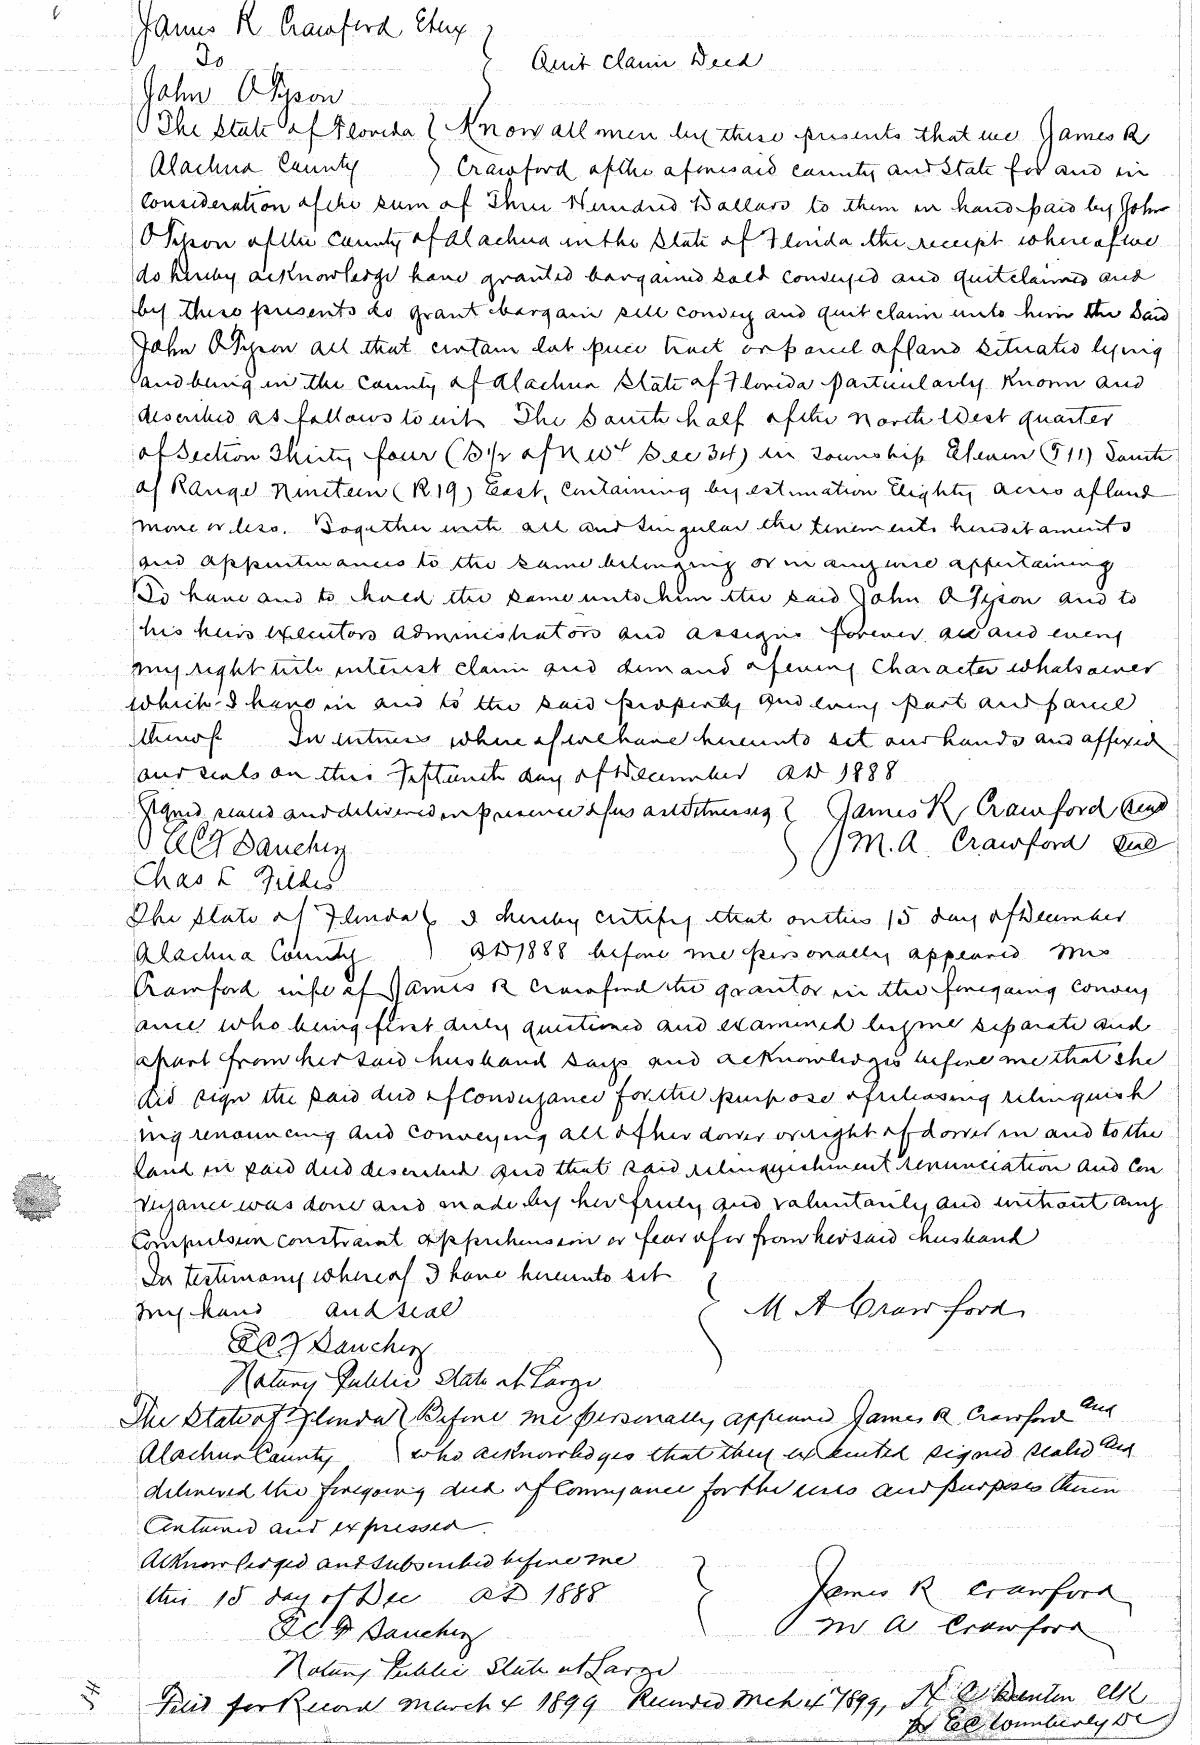 James R Crawford Etux
To
Quit Claim Deed
John O Tyson
The State of Florida Know all men by these presents that we James R
Alachua County Crawford of the aforesaid county and State for and in
Consideration of the sum of Three Hundred Dollars to them in hand paid by John
O Tyson of the County of Alachua in the State of Florida the receipt where of we
do hereby acknowledge have granted bargained sold conveyed and quitclaimed and
by these presents do grant bargain sell convey and quit claim unto him the Said
John O Tyson all that certain lot piece tract or parcel of land situated lying
and being in the County of Alachua State of Florida particularly Known and
described as follows to wit The South half of the North West quarter
of Section Thirty four (S1/2 of NW4 Sec 34) in Township Eleven (T11) South
of Range Nineteen (R19) East, Containing by estimation Eighty acres of land
more or less. Together with all and singular the tenements hereditaments
and appurtenances to the same belonging or in anywise appertaining
To have and to hold the same unto him the said John O Tyson and to
his heirs executors administrators and assigns forever all and every
my right title interest claim and demand of every Character whatsoever
which I have in and to the said property and every part and parcel
thereof In witness where of we have hereunto set our hands and affixed
our seals on this Fifteenth day of December AD 1888
Signed sealed and delivered in presence of us as Witnesses James R Crawford Seal
E C F Sanchez M. A. Crawford Seal
Chas E Fildes
The State of Florida I hereby certify that on this 15 day of December
Alachua County AD 1888 before me personally appeared Mrs
Crawford wife of James R Crawford the grantor in the foregoing Convey
ance who being first duly questioned and examined by me separate and
apart from her said husband says and acknowledges before me that she
did sign the said deed of Conveyance for the purpose of releasing relinquish
ing renouncing and conveying all of her dower or right of dower in and to the
land in said deed described and that said relinquishment renunciation and Con
veyance was done and made by her freely and voluntarily and without any
Compulsion constraint apprehension or fear of or from her said husband
In testimony whereof I have hereunto set
my hand and seal M A Crawford
E C F Sanchez
Notary Public State at Large
The State of Florida Before me personally appeared James R Crawford and
Alachua County who acknowledges that they executed signed sealed and
delivered the foregoing deed of Conveyance for the uses and purposes therein
Contained and expressed.
Acknowledged and subscribed before me
this 15 day of Dec AD 1888 James R Crawford
E C F Sanchez M A Crawford
Notary Public State at Large
Filed for Record March 4 1899 Recorded Mch 4 1899, H C Denton Clk